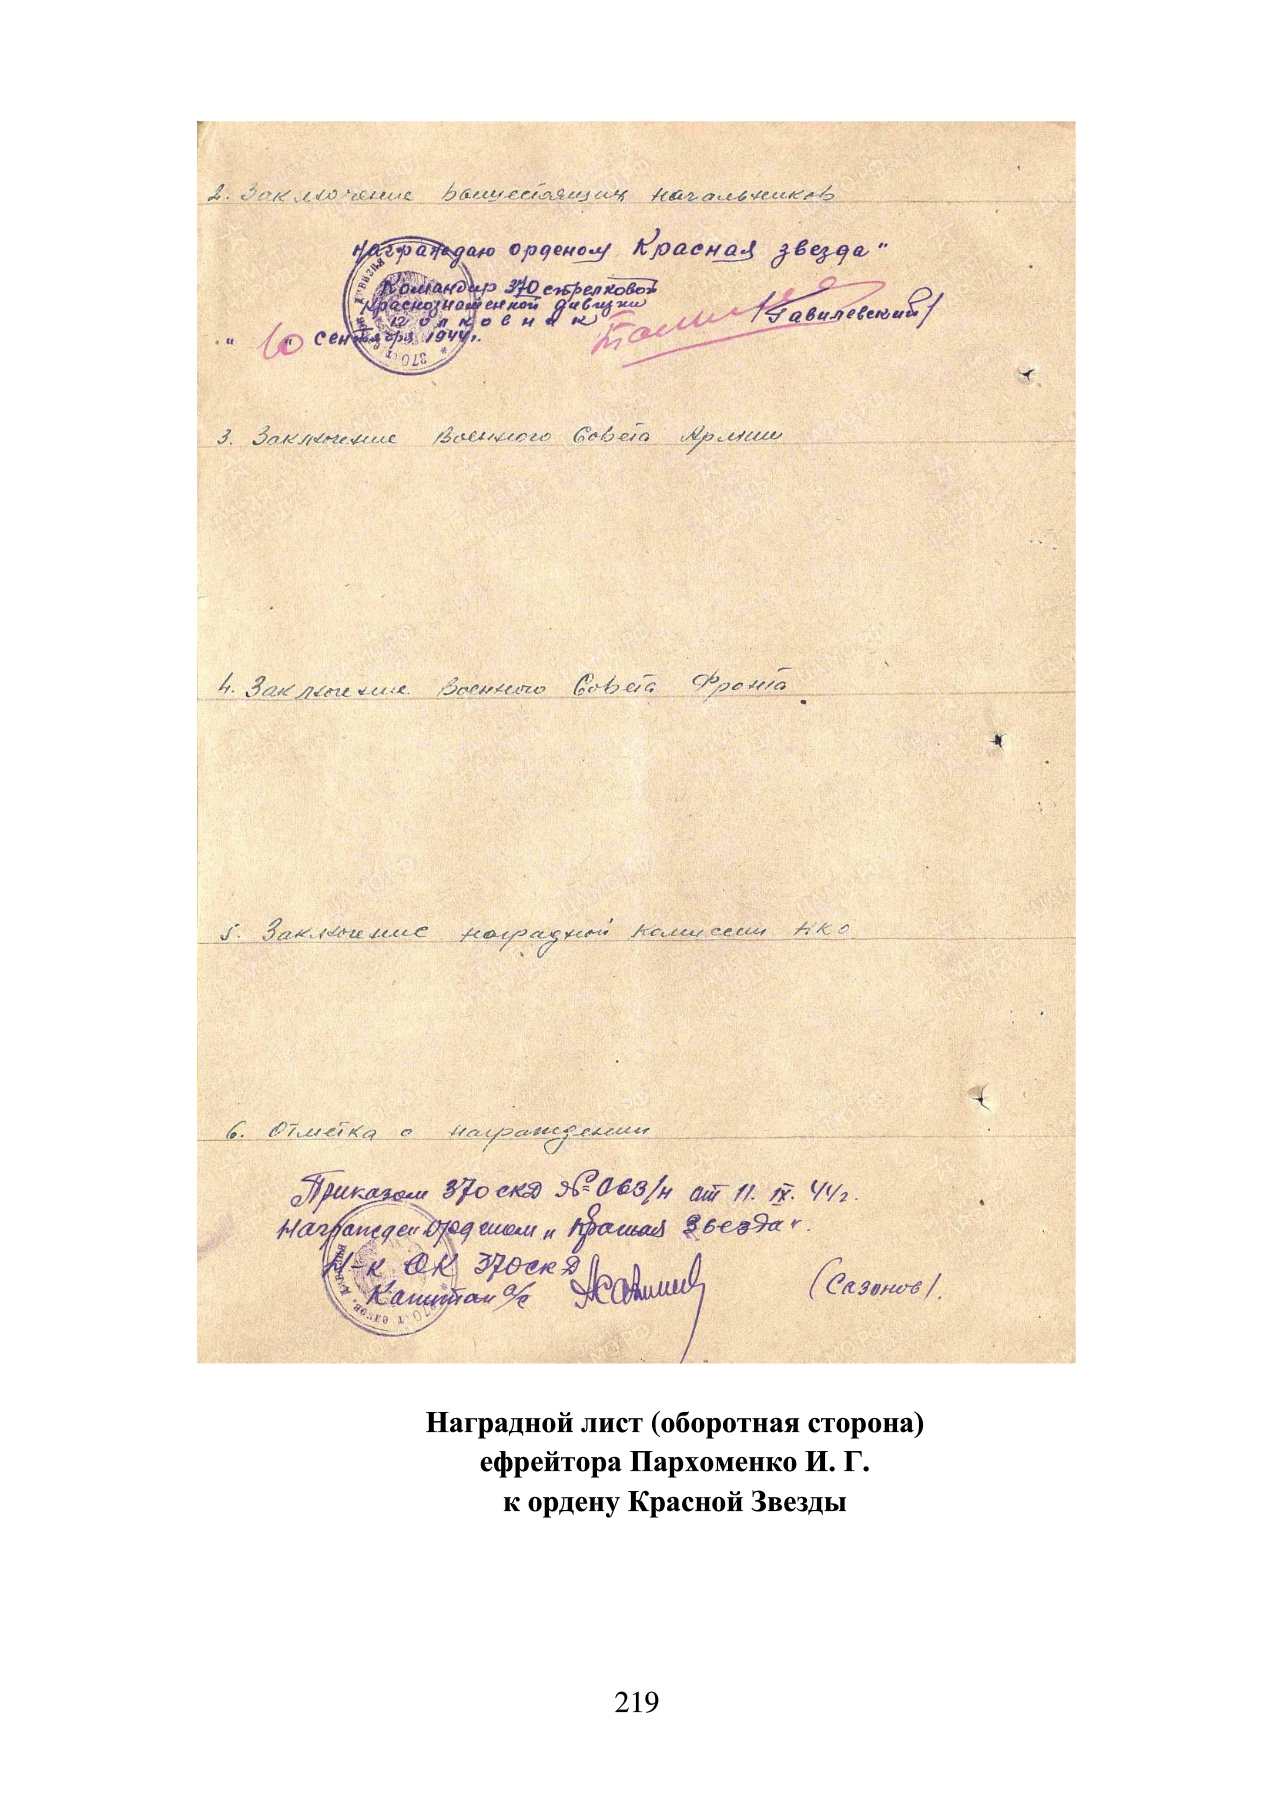 2. Заключение вышестоящих начальников
Награждаю орденом Красная звезда"
Командир 370 стрелковой
Краснознаменной дивизии
полковник /Гавилевский/
" 10 " сентября 1944г.
3. Заключение Военного Совета Армии
4. Заключение Военного Совета Фронта
5. Заключение наградной комиссии НКО
6. Отметка о награждении
Приказом 370 скд № 063/н от 11. IX. 44г.
Награжден орденом „Красная Звезда".
Н-к ОК 370 скд
Капитан а/с (Сазонов).
Наградной лист (оборотная сторона)
ефрейтора Пархоменко И. Г.
к ордену Красной Звезды
219